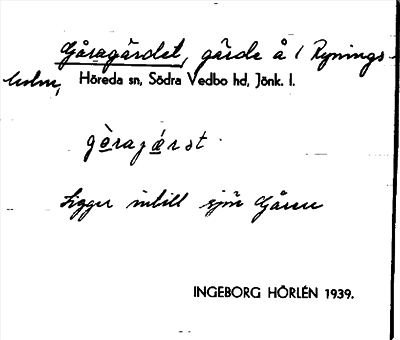 Gåragärdet, gärde å 1 Rynings-
holm, Höreda sn, Södra Vedbo hd, Jönk. l.
gèragárst
Ligger intill sjön Gåren
INGEBORG HÖRLÉN 1939.